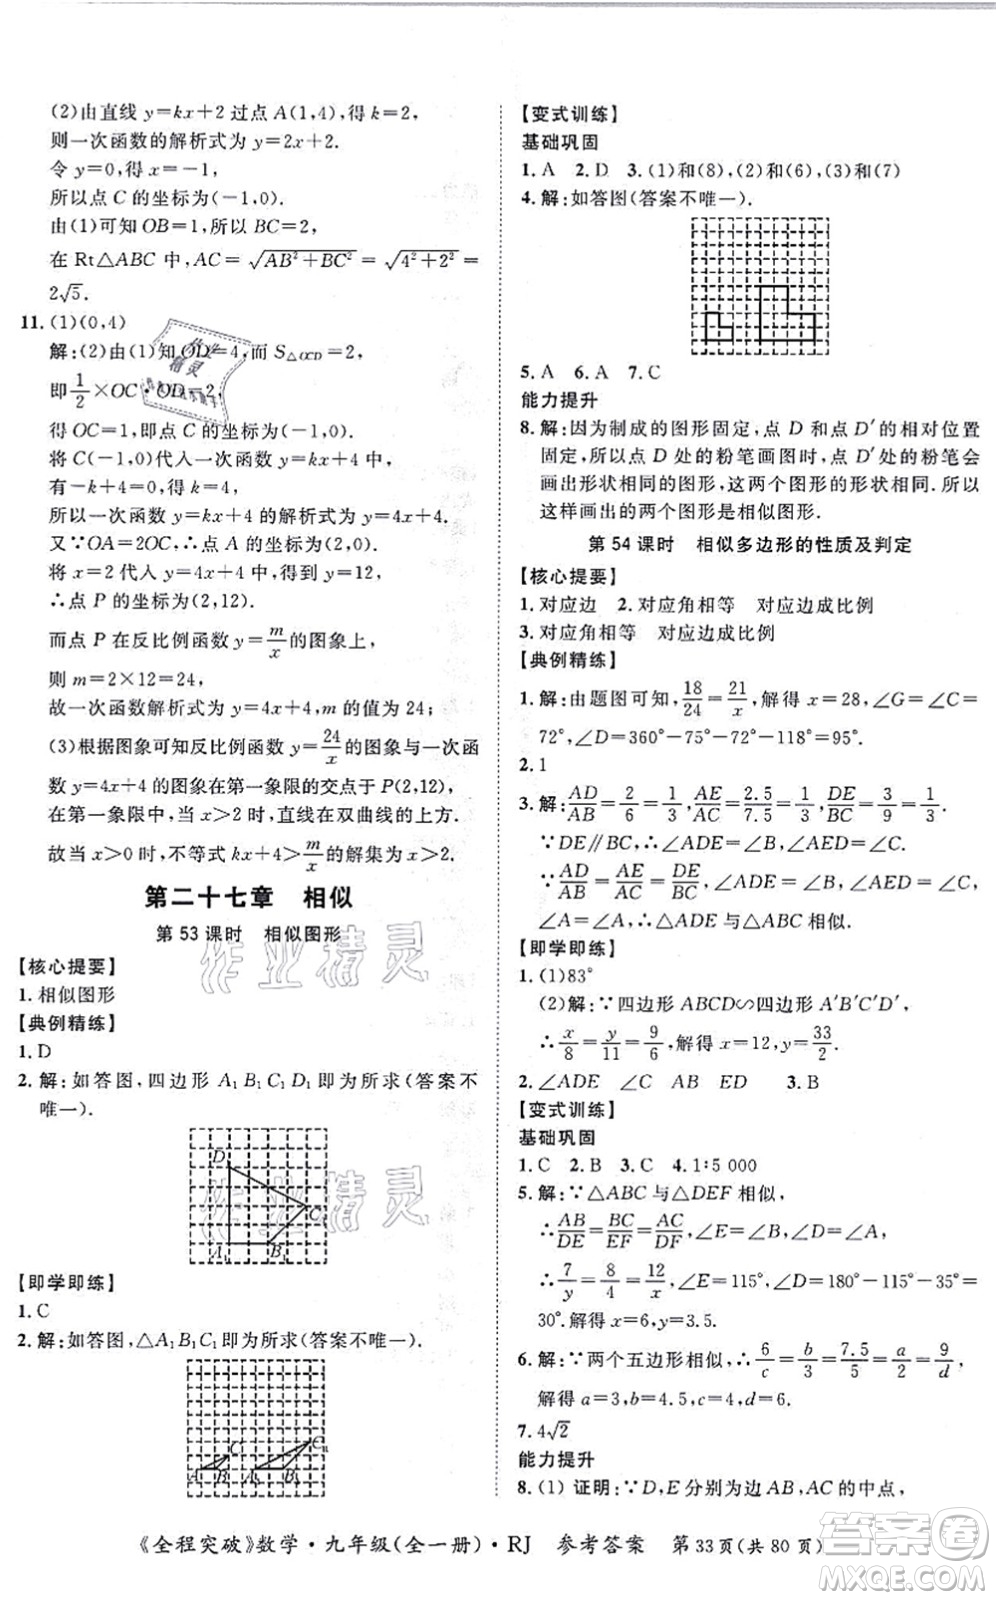 (2)由直线 y=kx+2 过点 A(1,4),得 k=2,
则一次函数的解析式为 y=2x+2.
令 y=0,得 x=-1,
所以点 C 的坐标为(-1,0).
由(1)可知 OB=1,所以 BC=2,
在 Rt△ABC 中,AC=√(AB²+BC²)=√(4²+2²)=
2√5.
11.(1)(0,4)
解:(2)由(1)知 OD=4,而 S△OCD=2,
即 1/2×OC·OD=2,
得 OC=1,即点 C 的坐标为(-1,0).
将 C(-1,0)代入一次函数 y=kx+4,
有-k+4=0,得 k=4,
所以一次函数 y=kx+4 的解析式为 y=4x+4.
又∵OA=2OC,∴点 A 的坐标为(2,0).
将 x=2 代入 y=4x+4,得 y=12,
∴点 P 的坐标为(2,12).
而点 P 在反比例函数 y=m/x 的图象上,
则 m=2×12=24,
故一次函数解析式为 y=4x+4,m 的值为 24;
(3)根据图象可知反比例函数 y=24/x 与一次函
数 y=4x+4 的图象在第一象限的交点于 P(2,12),
在第一象限中,当 x>2 时,直线在双曲线的上方.
故当 x>0 时,不等式 kx+4>m/x 的解集为 x>2.
第二十七章 相似
第 53 课时 相似图形
【核心提要】
1.相似图形
【典例精练】
1.D
2.解:如答图,四边形 A₁B₁C₁D₁ 即为所求(答案不
唯一).
D₁
C₁
A₁ B₁
【即学即练】
1.C
2.解:如答图,△A₁B₁C₁ 即为所求(答案不唯一).
C C₁
A B A₁ B₁
【变式训练】
基础巩固
1.A 2.D 3.(1)和(8),(2)和(6),(3)和(7)
4.解:如答图(答案不唯一).
5.A 6.A 7.C
能力提升
8.解:因为制成的图形固定,点 D 和点 D′的相对位置
固定,所以点 D 处的粉笔画图时,点 D′处的粉笔会
画出形状相同的图形,这两个图形的形状相同.所以
这样画出的两个图形是相似图形.
第 54 课时 相似多边形的性质及判定
【核心提要】
1.对应边 2.对应角相等 对应边成比例
3.对应角相等 对应边成比例
【典例精练】
1.解:由题图可知,18/24=21/x,解得 x=28,∠G=∠C=
72°,∠D=360°-75°-72°-118°=95°.
2.1
3.解:AD/AB=2/6=1/3,AE/AC=2.5/7.5=1/3,DE/BC=3/9=1/3.
∵DE∥BC,∴∠ADE=∠B,∠AED=∠C.
又∵∠A=∠A,AD/AB=AE/AC=DE/BC,
∴△ADE 与△ABC 相似.
【即学即练】
1.(1)83°
(2)解:∵四边形 ABCD∽四边形 A′B′C′D′,
∴x/8=y/11=9/6,解得 x=12,y=33/2.
2.∠ADE ∠C AB ED 3.B
【变式训练】
基础巩固
1.C 2.B 3.C 4.1∶5 000
5.解:∵△ABC 与△DEF 相似,
∴AB/DE=BC/EF=AC/DF,∠E=∠B,∠D=∠A,
∴7/y=8/4=12/x,∠E=115°,∠D=180°-115°-35°=
30°.解得 x=6,y=3.5.
6.解:∵两个五边形相似,∴6/c=b/3=7.5/5=a/2=9/d,
解得 a=3,b=4.5,c=4,d=6.
7.4√2
能力提升
8.(1)证明:∵D,E 分别为边 AB,AC 的中点,
《全程突破》数学·九年级(全一册)·RJ 参考答案 第33页(共80页)
作业精灵
作业精灵
MXQE.COM